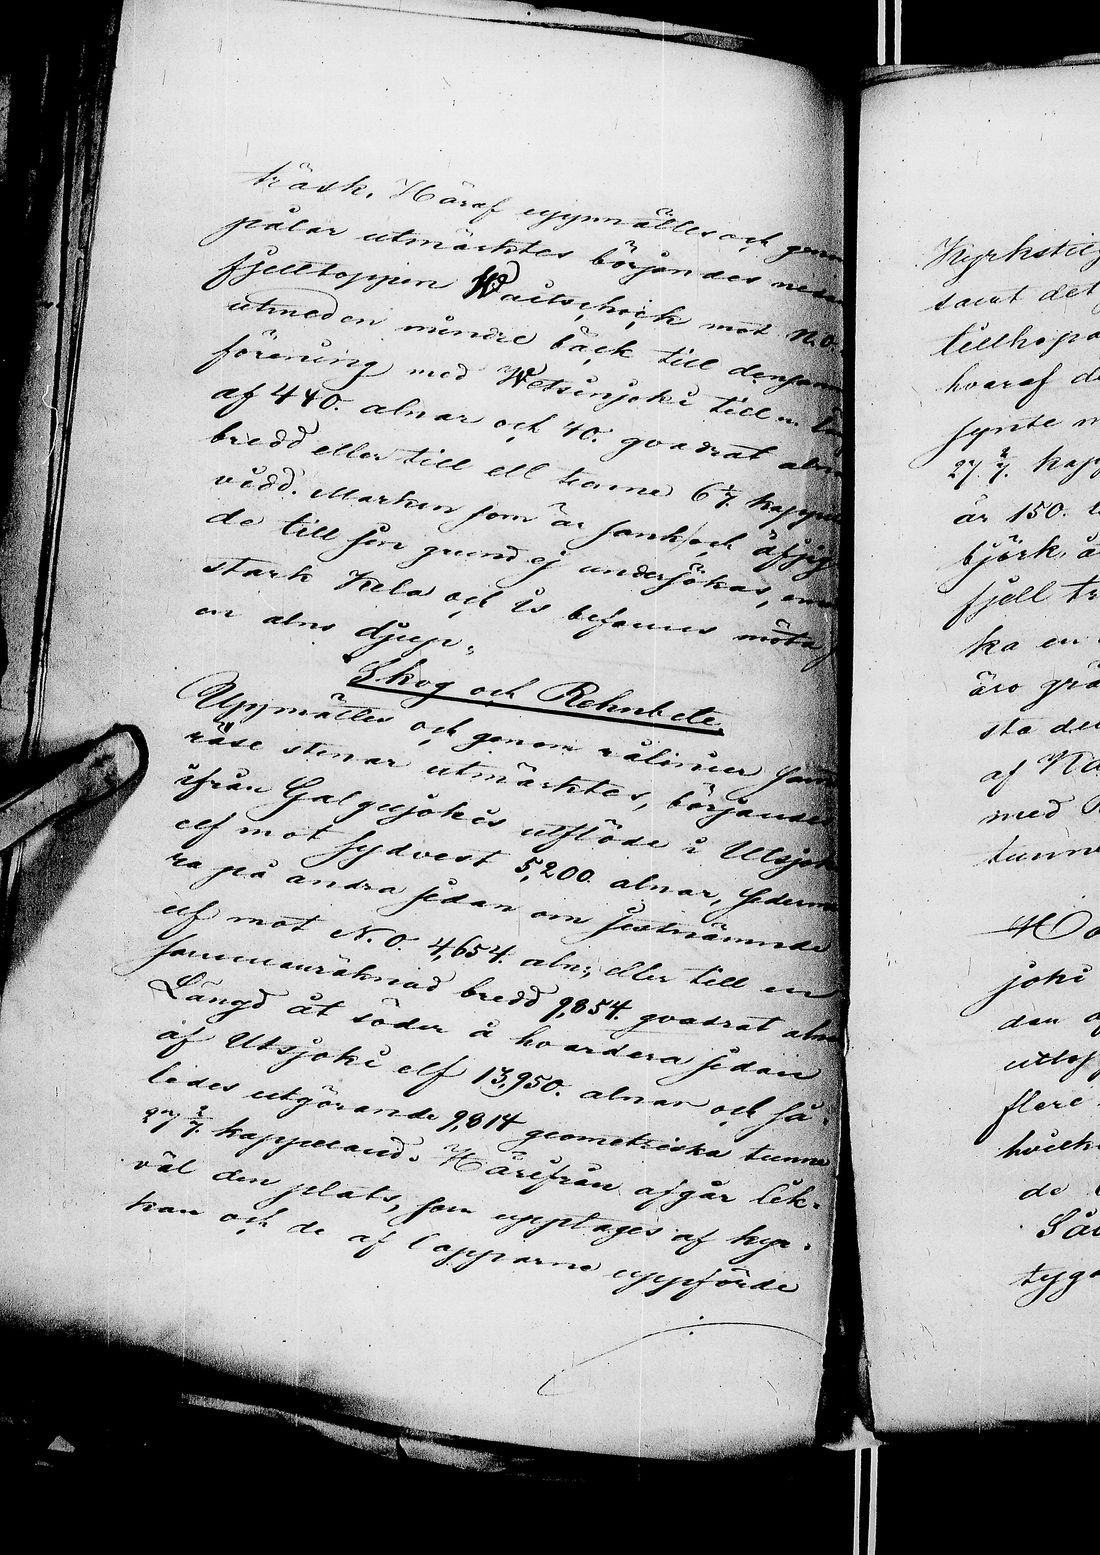 träsk. Häraf uppmättes och genom
pålar utmärktes börjandes nedan
fjelltoppen Waitschoick mot N.O.
utmed en mindre bäck till densam
förening med Wetsinjoki till en
af 440. alnar och 40. qvadrat alnar
bredd eller till ett tunne 6 4/7. kappe
vidd. Marken som är sank och
de till sin grund ej undersökas,
stark Kela och is befanns möta
en alns djup.
Skog och Rehnbete.
Uppmättes och genom rålinier samt
röse stenar utmärktes, börjandes
ifrån Galgujokis utflöde i Utsjoki
elf mot sydvest 5,200. alnar, sederme
ra på andra sidan om sistnämnde
elf mot N.O. 4,654. aln. eller till en
sammanräknad bredd 9,854. qvadrat alnar
Längd åt söder å hvardera sidan
af Utsjoki elf 13,950. alnar och så-
ledes utgörande 9,814 geometriska tunne
27 2/7. kappeland. Härifrån afgår lik-
väl den plats, som upptages af kyr-
kan och de af Lapparne uppförde
Kyrkstu
samt det
tillhopa
hvaraf d
synte
27 2/7. kapp
är 150.
björk
fjell tr
ka en
äro grä
sta de
af
med
tunne
joki
den
utlo
flere
hvilk
de
Så
tyg